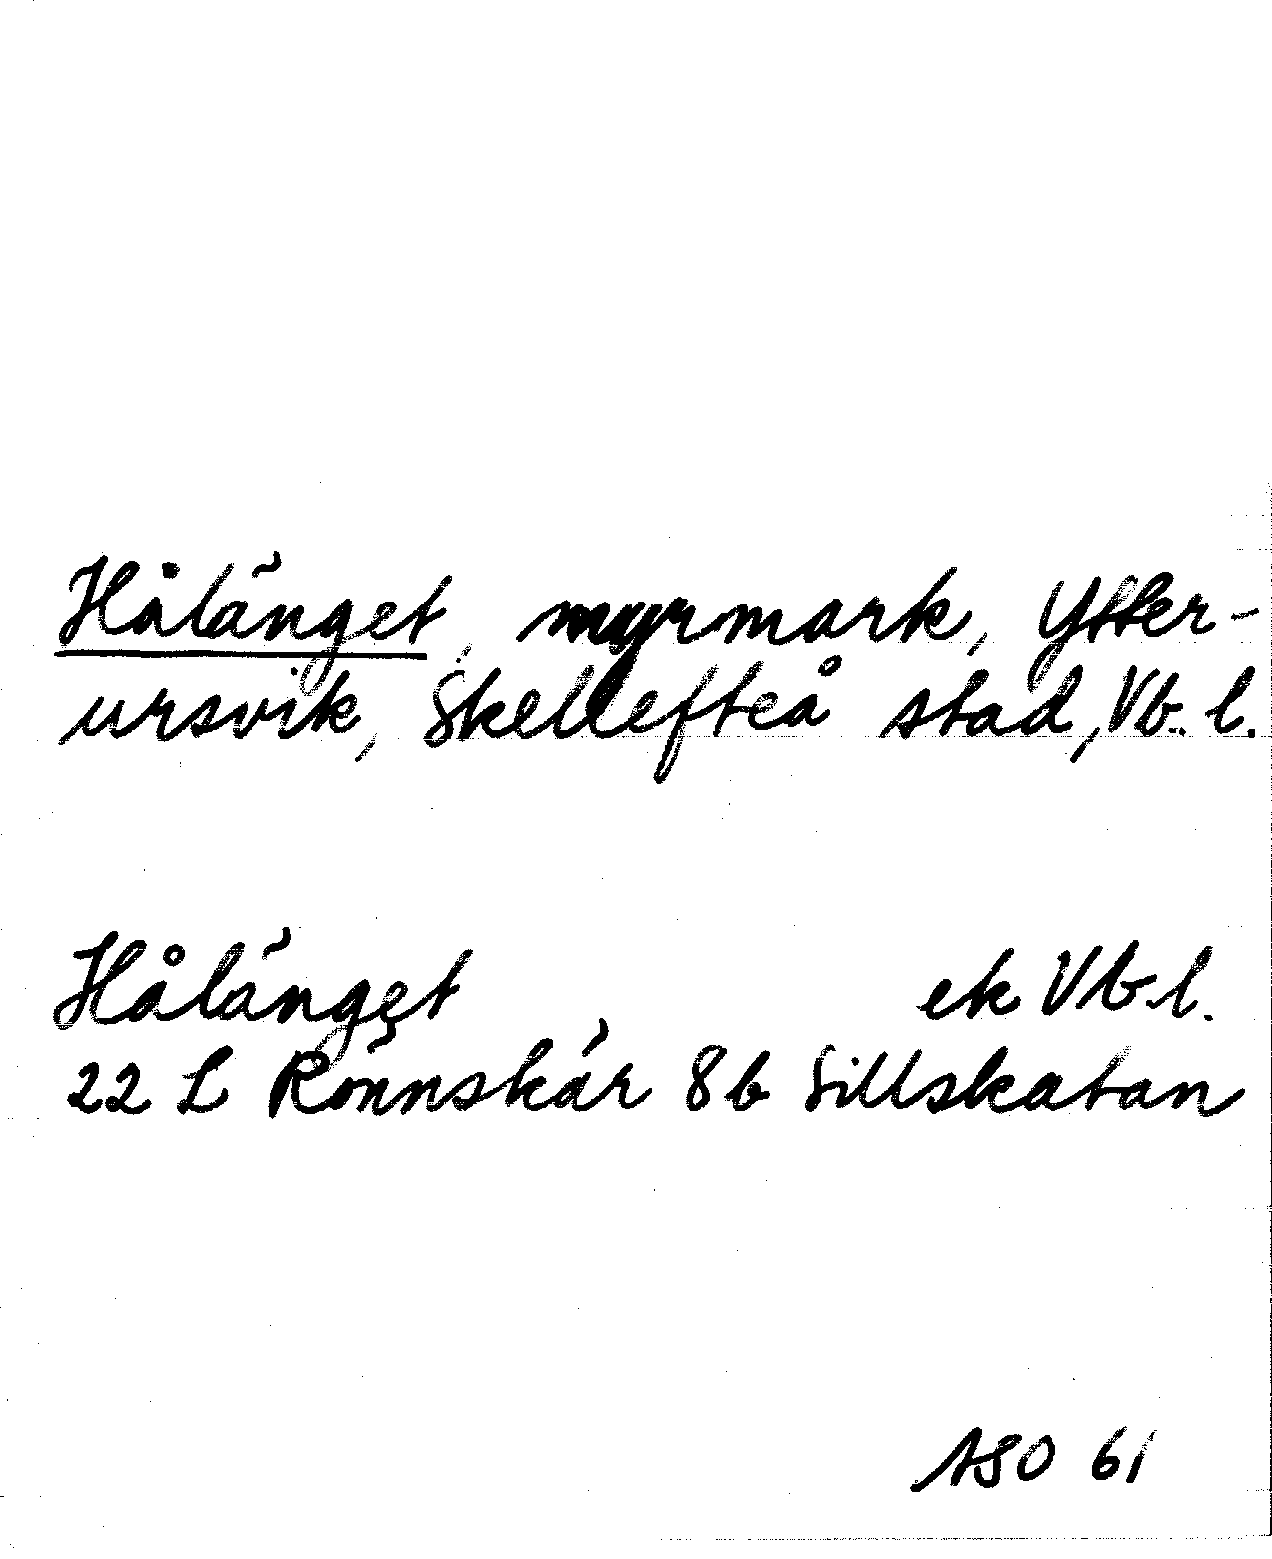 Hålänget, myrmark, Ytter-
ursvik, Skellefteå stad, Vb. l.
Hålänget ek Vb. l.
22 L Rönnskär 8b Sillskatan
ASO 61